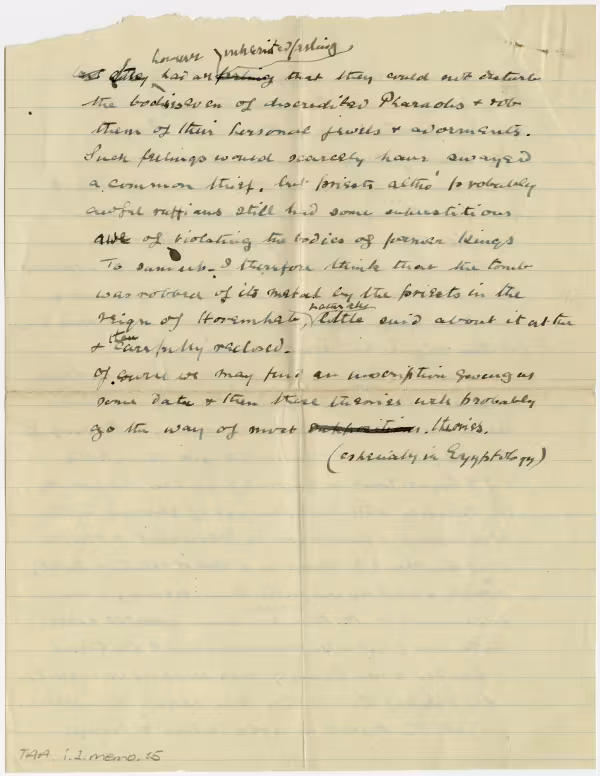 however inherited feeling
they had an feeling that they could not disturb
the bodies even of discredited Pharaohs & rob
them of their personal jewels & adorments.
Such feelings would scarcely have swayed
a common thief, but priests altho' probably
awful ruffians still had some superstitious
awe of violating the bodies of former Kings
To sum up - I therefore think that the tomb
was robbed of its metal by the priests in the
reign of Horemheb, little said about it at the
then
& carefully reclosed.
Of course we may find an inscription giving us
some data & then these theories will probably
go the way of most suppositions. theories.
(especially in Egyptology)
TAA i.2.memo.15